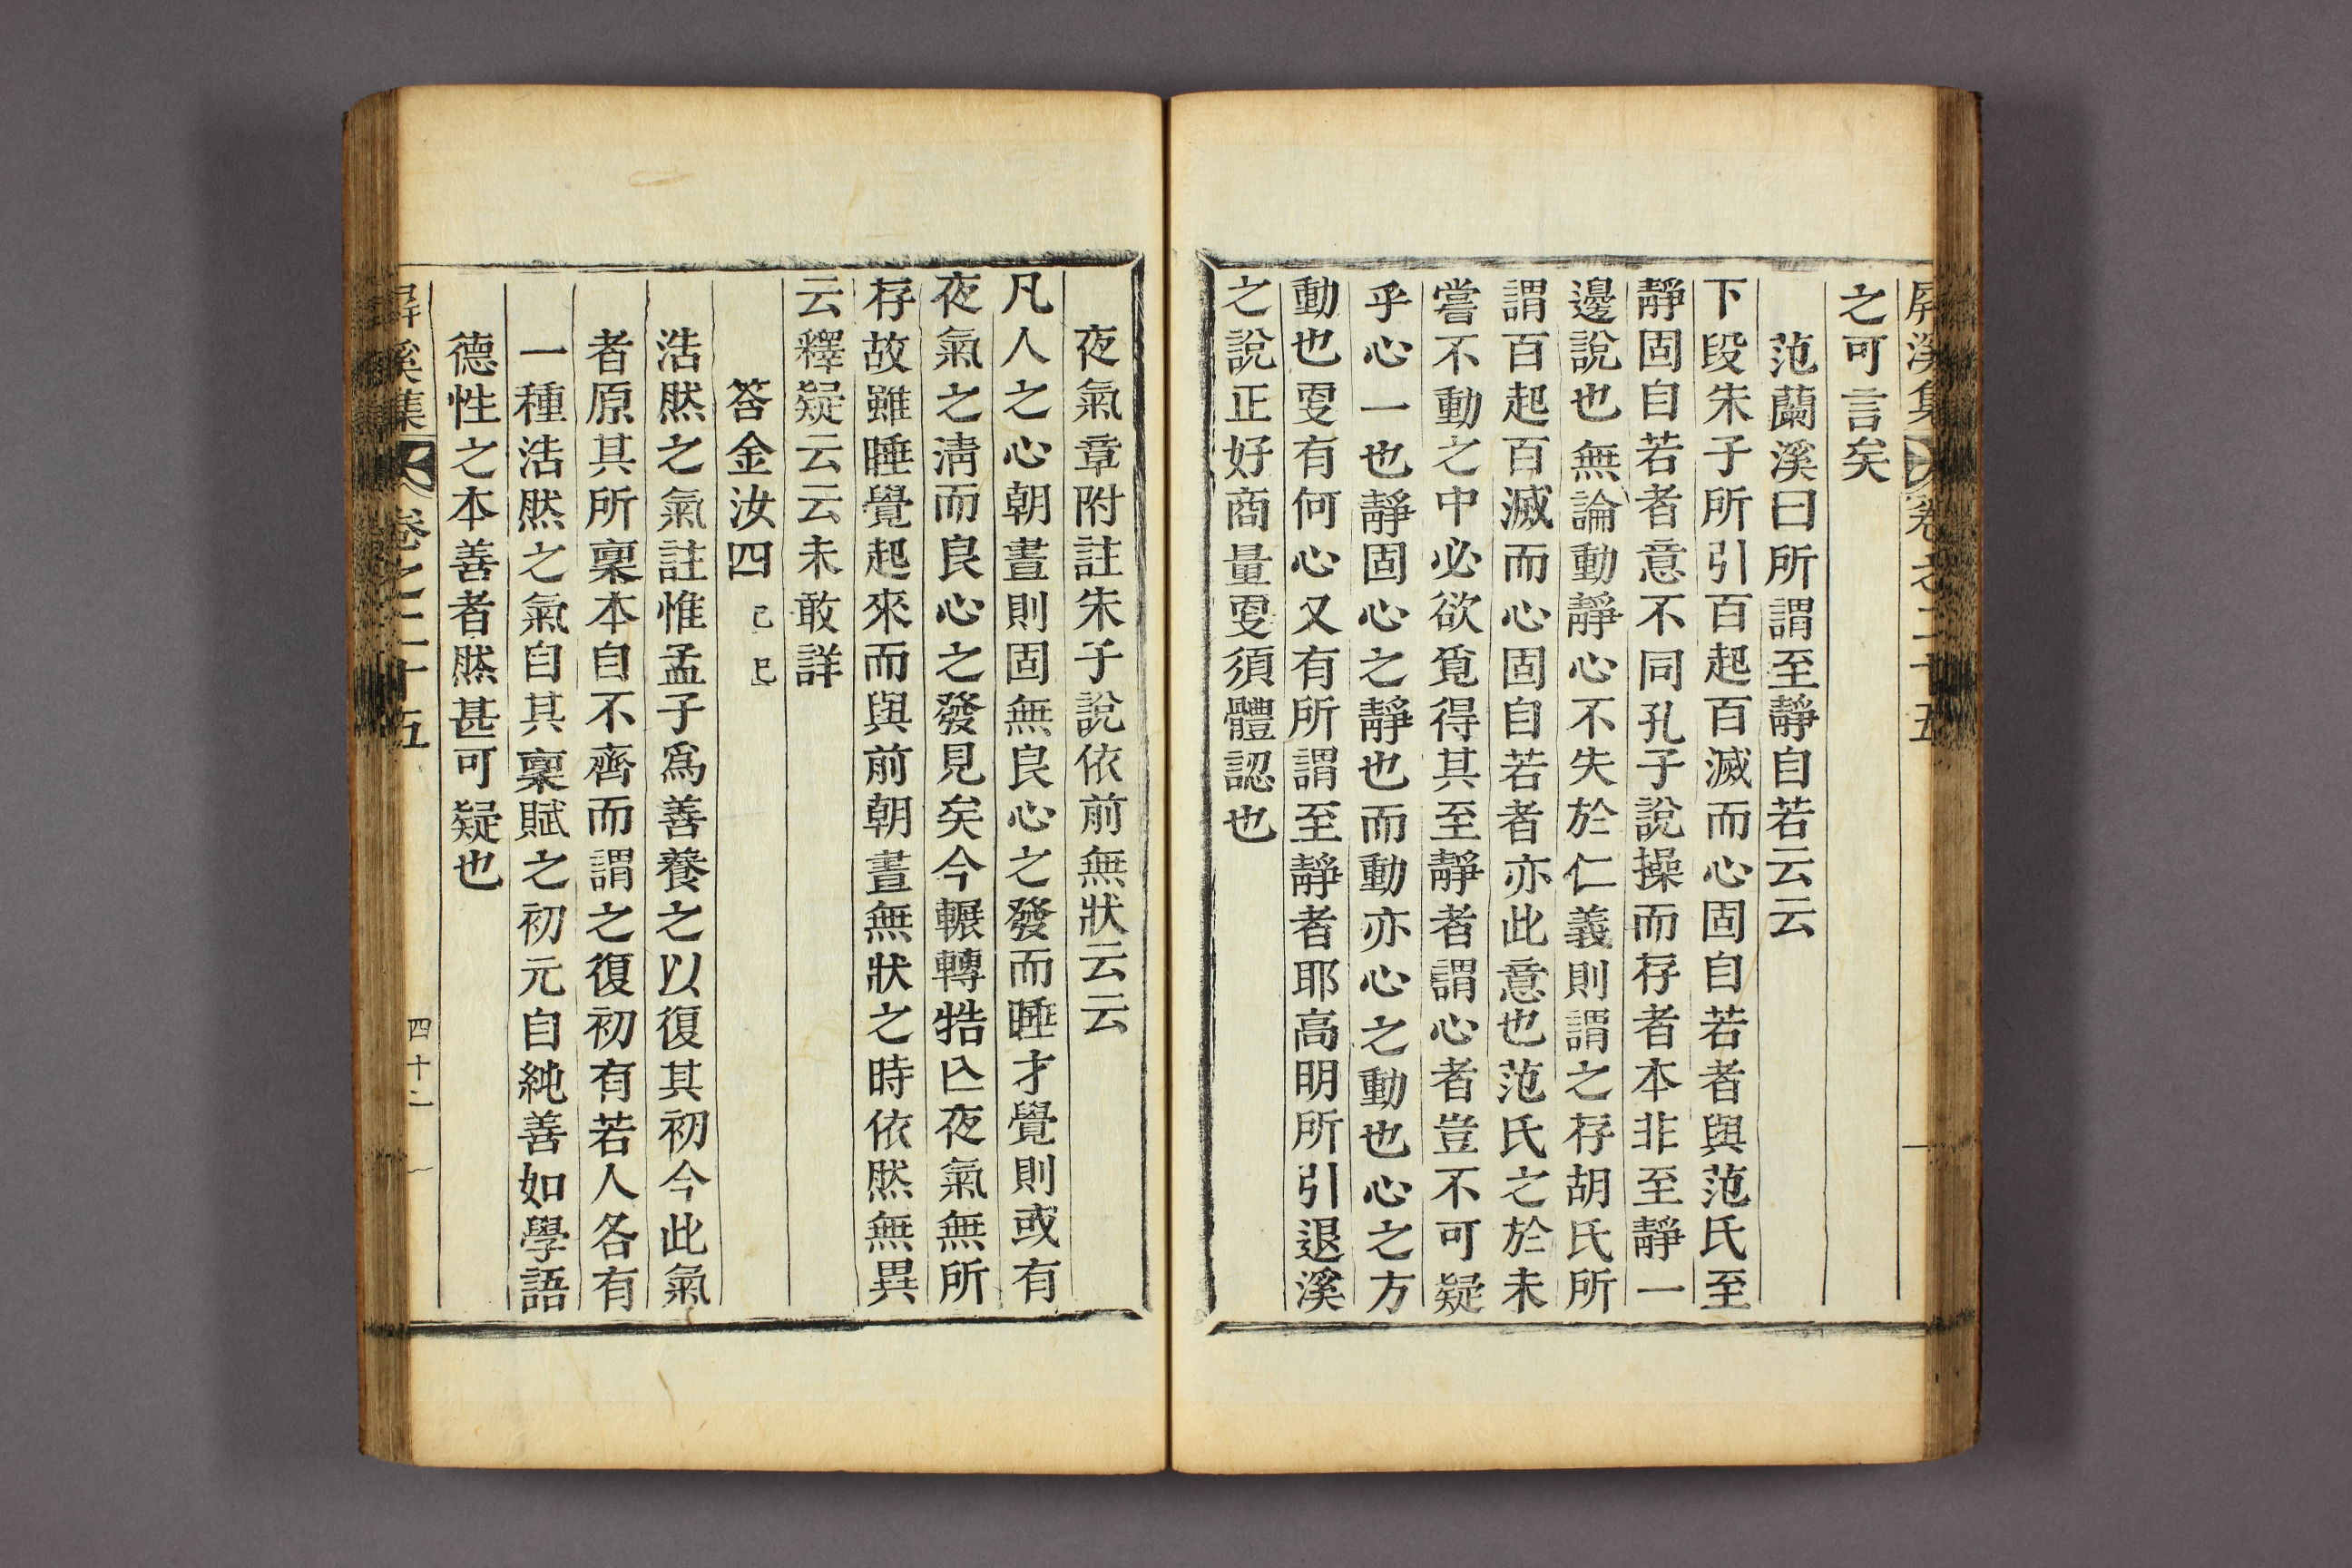 屛溪集 卷之二十五
之可言矣
范蘭溪曰所謂至靜自若云云
下段朱子所引百起百滅而心固自若者與范氏至
靜固自若者意不同孔子說操而存者本非至靜一
邊說也無論動靜心不失於仁義則謂之存胡氏所
謂百起百滅而心固自若者亦此意也范氏之於未
嘗不動之中必欲覓得其至靜者謂心者豈不可疑
乎心一也靜固心之靜也而動亦心之動也心之方
動也更有何心又有所謂至靜者耶高明所引退溪
之說正好商量更須體認也
夜氣章附註朱子說依前無狀云云
凡人之心朝晝則固無良心之發而睡才覺則或有
夜氣之淸而良心之發見矣今輾轉牿亡夜氣無所
存故雖睡覺起來而與前朝晝無狀之時依然無異
云釋疑云云未敢詳
答金汝四 己巳
浩然之氣註惟孟子爲善養之以復其初今此氣
者原其所稟本自不齊而謂之復初有若人各有
一種浩然之氣自其稟賦之初元自純善如學語
德性之本善者然甚可疑也
屛溪集 卷之二十五 四十二